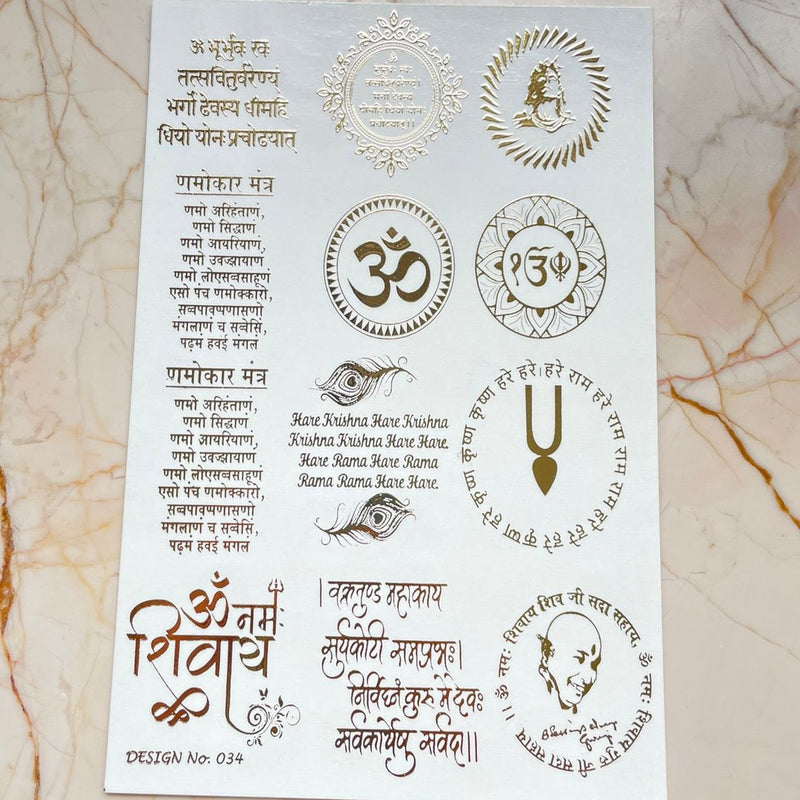 ॐ भूर्भुवः स्वः
तत्सवितुर्वरेण्यं
भर्गो देवस्य धीमहि
धियो योनः प्रचोदयात्
ॐ
प्रचोदयात्।।
णमोकार मंत्र
णमो अरिहंताणं,
णमो सिद्धाणं
णमो आयरियाणं,
णमो उवज्झायाणं
णमो लोएसव्वसाहूणं
एसो पंच णमोक्कारो,
सव्वपावप्पणासणो
मंगलाणं च सव्वेसिं,
पढ़मं हवई मंगलं
ॐ
ੴ
णमोकार मंत्र
णमो अरिहंताणं,
णमो सिद्धाणं
णमो आयरियाणं,
णमो उवज्झायाणं
णमो लोएसव्वसाहूणं
एसो पंच णमोक्कारो,
सव्वपावप्पणासणो
मंगलाणं च सव्वेसिं,
पढ़मं हवई मंगलं
Hare Krishna Hare Krishna
Krishna Krishna Hare Hare.
Hare Rama Hare Rama
Rama Rama Hare Hare.
हरे राम हरे राम राम राम हरे हरे हरे कृष्ण हरे कृष्ण कृष्ण कृष्ण हरे हरे।
ॐ नमः
शिवाय
। वक्रतुण्ड महाकाय
सुर्यकोटी समप्रभः।
निर्विघ्नं कुरु मे देवः
सर्वकार्येषु सर्वदा।।
ॐ नमः शिवाय शिव जी सदा सहाय, ॐ नमः शिवाय गुरु जी सदा सहाय ।।
DESIGN No. 034